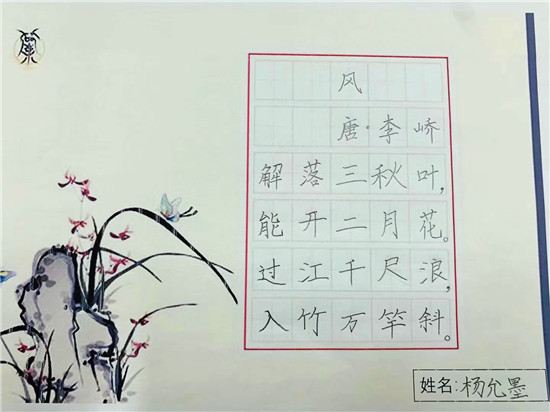 风
唐·李峤
解落三秋叶，
能开二月花。
过江千尺浪，
入竹万竿斜。
姓名:杨允墨